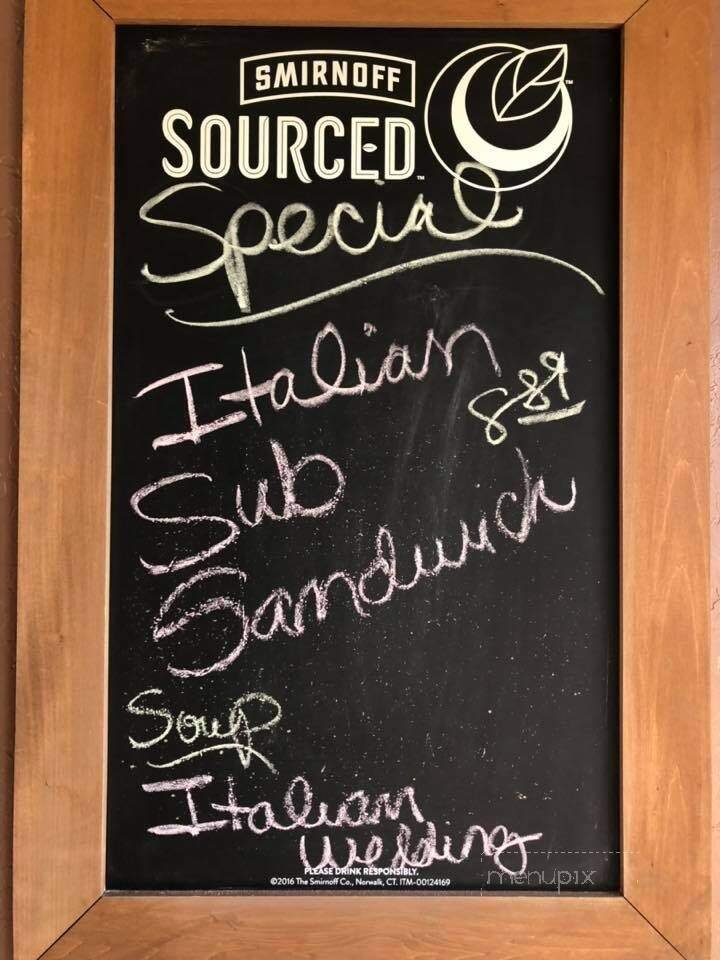 SMIRNOFF
SOURCED™
Special
Italian
8 89
Sub
Sandwich
Soup
Italian
Wedding
PLEASE DRINK RESPONSIBLY.
©2016 The Smirnoff Co., Norwalk, CT. ITM-00124169
menupix